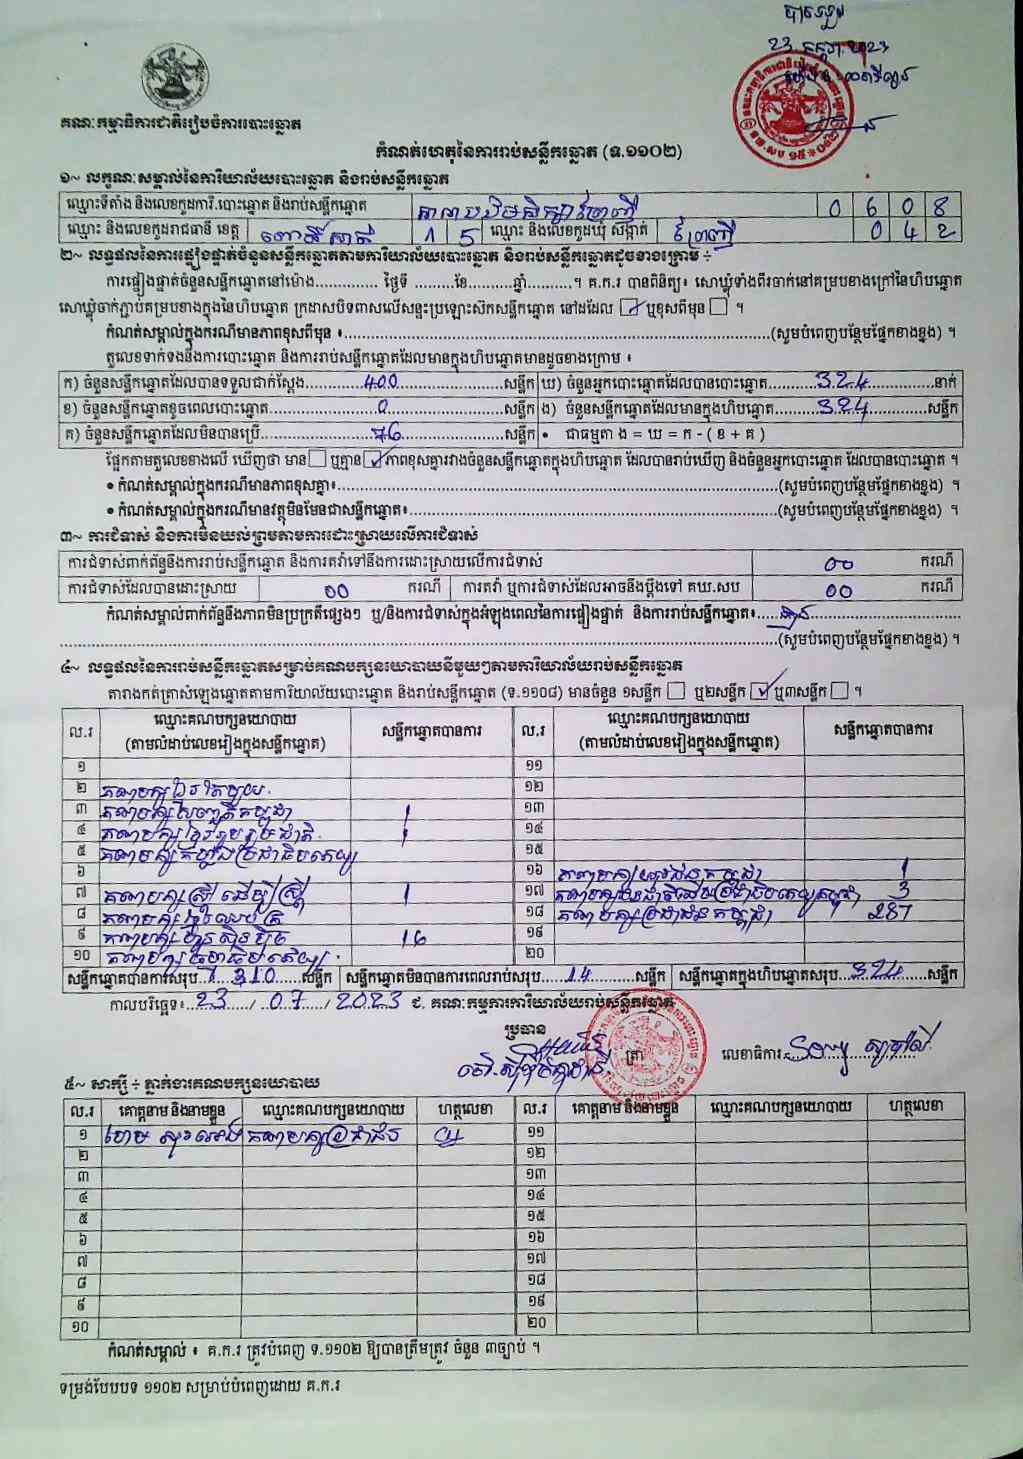 បានឃើញ
23 កក្កដា 2023
គណៈកម្មាធិការជាតិរៀបចំការបោះឆ្នោត
កំណត់ហេតុនៃការរាប់សន្លឹកឆ្នោត (ទ.១១០២)
១~ លក្ខណៈសម្គាល់នៃការិយាល័យបោះឆ្នោត និងរាប់សន្លឹកឆ្នោត
ឈ្មោះទីតាំង និងលេខកូដការិ.បោះឆ្នោត និងរាប់សន្លឹកឆ្នោត 0 6 0 8
ឈ្មោះ និងលេខកូដរាជធានី ខេត្ត ពោធិ៍សាត់ 1 5 ឈ្មោះ និងលេខកូដឃុំ សង្កាត់ 0 4 2
២~ លទ្ធផលនៃការផ្ទៀងផ្ទាត់ចំនួនសន្លឹកឆ្នោតតាមការិយាល័យបោះឆ្នោត និងរាប់សន្លឹកឆ្នោតដូចខាងក្រោម ÷
ការផ្ទៀងផ្ទាត់ចំនួនសន្លឹកឆ្នោតនៅម៉ោង.............. ថ្ងៃទី .........ខែ...........ឆ្នាំ..........។ គ.ក.រ បានពិនិត្យ៖ សោឃ្លុំទាំងពីរចាក់នៅគម្របខាងក្រៅនៃហិបឆ្នោត
សោឃ្លុំចាក់ភ្ជាប់គម្របខាងក្នុងនៃហិបឆ្នោត ក្រដាសបិទពាសលើសន្ទះប្រឡោះស៊កសន្លឹកឆ្នោត នៅដដែល ☑ ឬខុសពីមុន ☐ ។
កំណត់សម្គាល់ក្នុងករណីមានភាពខុសពីមុន ៖...............(សូមបំពេញបន្ថែមផ្នែកខាងខ្នង) ។
តួលេខទាក់ទងនឹងការបោះឆ្នោត និងការរាប់សន្លឹកឆ្នោតដែលមានក្នុងហិបឆ្នោតមានដូចខាងក្រោម ៖
ក) ចំនួនសន្លឹកឆ្នោតដែលបានទទួលជាក់ស្តែង......400......សន្លឹក ឃ) ចំនួនអ្នកបោះឆ្នោតដែលបានបោះឆ្នោត......324......នាក់
ខ) ចំនួនសន្លឹកឆ្នោតខូចពេលបោះឆ្នោត......0......សន្លឹក ង) ចំនួនសន្លឹកឆ្នោតដែលមានក្នុងហិបឆ្នោត......324......សន្លឹក
គ) ចំនួនសន្លឹកឆ្នោតដែលមិនបានប្រើ......76......សន្លឹក • ជាធម្មតា ង = ឃ = ក - ( ខ + គ )
ផ្អែកតាមតួលេខខាងលើ ឃើញថា មាន ☐ ឬគ្មាន ☑ ភាពខុសគ្នារវាងចំនួនសន្លឹកឆ្នោតក្នុងហិបឆ្នោត ដែលបានរាប់ឃើញ និងចំនួនអ្នកបោះឆ្នោត ដែលបានបោះឆ្នោត ។
• កំណត់សម្គាល់ក្នុងករណីមានភាពខុសគ្នា៖...............(សូមបំពេញបន្ថែមផ្នែកខាងខ្នង) ។
• កំណត់សម្គាល់ក្នុងករណីមានវត្ថុមិនមែនជាសន្លឹកឆ្នោត៖...............(សូមបំពេញបន្ថែមផ្នែកខាងខ្នង) ។
៣~ ការជំទាស់ និងការមិនយល់ព្រមតាមការដោះស្រាយលើការជំទាស់
ការជំទាស់ពាក់ព័ន្ធនឹងការរាប់សន្លឹកឆ្នោត និងការតវ៉ាទៅនឹងការដោះស្រាយលើការជំទាស់ 00 ករណី
ការជំទាស់ដែលបានដោះស្រាយ 00 ករណី ការតវ៉ា ឬការជំទាស់ដែលអាចនឹងប្តឹងទៅ គឃ.សប 00 ករណី
កំណត់សម្គាល់ពាក់ព័ន្ធនឹងភាពមិនប្រក្រតីផ្សេងៗ ឬ/និងការជំទាស់ក្នុងអំឡុងពេលនៃការផ្ទៀងផ្ទាត់ និងការរាប់សន្លឹកឆ្នោត៖.....គ្មាន.....
...............(សូមបំពេញបន្ថែមផ្នែកខាងខ្នង) ។
៤~ លទ្ធផលនៃការរាប់សន្លឹកឆ្នោតសម្រាប់គណបក្សនយោបាយនីមួយៗតាមការិយាល័យរាប់សន្លឹកឆ្នោត
តារាងកត់ត្រាសំឡេងឆ្នោតតាមការិយាល័យបោះឆ្នោត និងរាប់សន្លឹកឆ្នោត (ទ.១១០៨) មានចំនួន ១សន្លឹក ☐ ឬ២សន្លឹក ☑ ឬ៣សន្លឹក ☐ ។
ល.រ ឈ្មោះគណបក្សនយោបាយ (តាមលំដាប់លេខរៀងក្នុងសន្លឹកឆ្នោត) សន្លឹកឆ្នោតបានការ ល.រ ឈ្មោះគណបក្សនយោបាយ (តាមលំដាប់លេខរៀងក្នុងសន្លឹកឆ្នោត) សន្លឹកឆ្នោតបានការ
១ ១១
២ ១២
៣ គណបក្សសញ្ជាតិកម្ពុជា 1 ១៣
៤ 1 ១៤
៥ គណបក្សកម្លាំងប្រជាធិបតេយ្យ ១៥
៦ ១៦ 1
៧ គណបក្សស្ត្រីដើម្បីស្ត្រី 1 ១៧ 3
៨ ១៨ គណបក្សប្រជាជនកម្ពុជា 287
៩ គណបក្សហ៊្វុនស៊ិនប៉ិច 16 ១៩
១០ គណបក្សធម្មាធិបតេយ្យ ២០
សន្លឹកឆ្នោតបានការសរុប......310......សន្លឹក សន្លឹកឆ្នោតមិនបានការពេលរាប់សរុប...14......សន្លឹក សន្លឹកឆ្នោតក្នុងហិបឆ្នោតសរុប...324...សន្លឹក
កាលបរិច្ឆេទ៖..23..../ ..07..../ 2023 ជ. គណៈកម្មការការិយាល័យរាប់សន្លឹកឆ្នោត
ប្រធាន
ត្រា លេខាធិការ
៥~ សាក្សី ÷ ភ្នាក់ងារគណបក្សនយោបាយ
ល.រ គោត្តនាម និងនាមខ្លួន ឈ្មោះគណបក្សនយោបាយ ហត្ថលេខា ល.រ គោត្តនាម និងនាមខ្លួន ឈ្មោះគណបក្សនយោបាយ ហត្ថលេខា
១ គណបក្សប្រជាជន ១១
២ ១២
៣ ១៣
៤ ១៤
៥ ១៥
៦ ១៦
៧ ១៧
៨ ១៨
៩ ១៩
១០ ២០
កំណត់សម្គាល់ ៖ គ.ក.រ ត្រូវបំពេញ ទ.១១០២ ឱ្យបានត្រឹមត្រូវ ចំនួន ៣ច្បាប់ ។
ទម្រង់បែបបទ ១១០២ សម្រាប់បំពេញដោយ គ.ក.រ